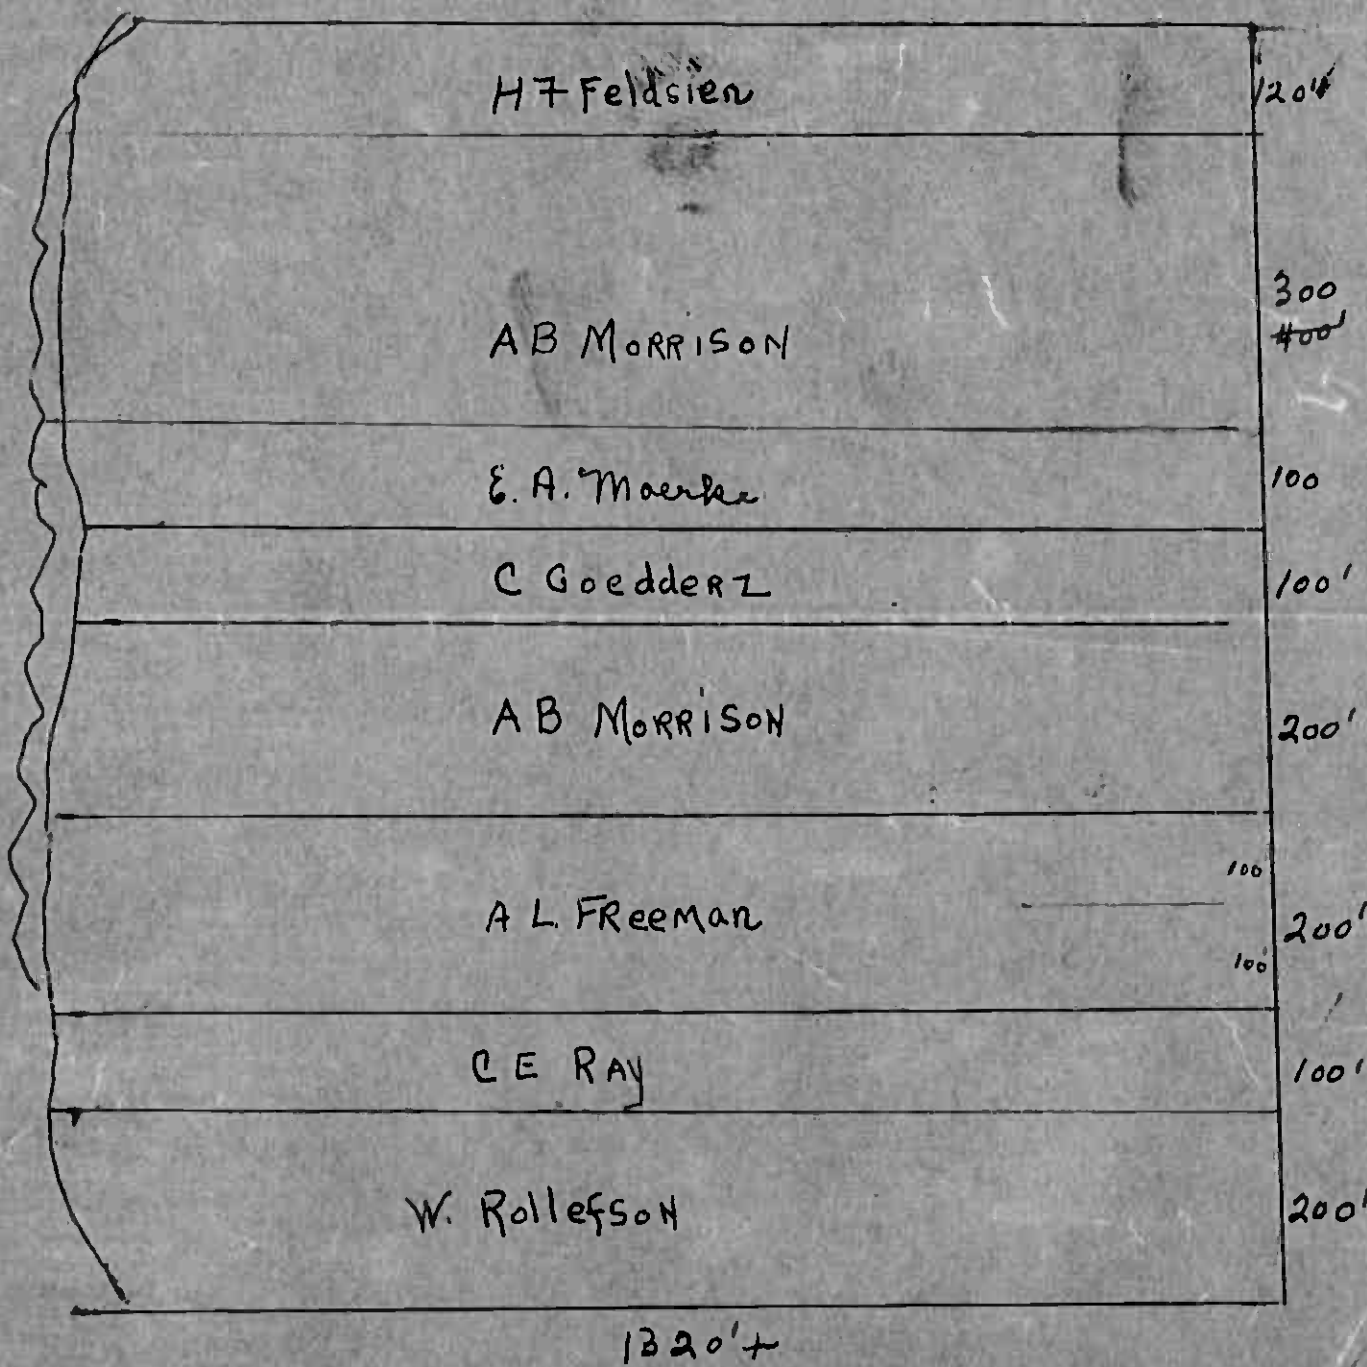 H F Feldsien
120'
300
400'
A B MORRISON
E. A. Moerke
100
C GoedderZ
100'
A B MORRISON
200'
100
A L. FReeman
200'
100'
C E RAy
100'
W. RollefSoN
200'
1320'+